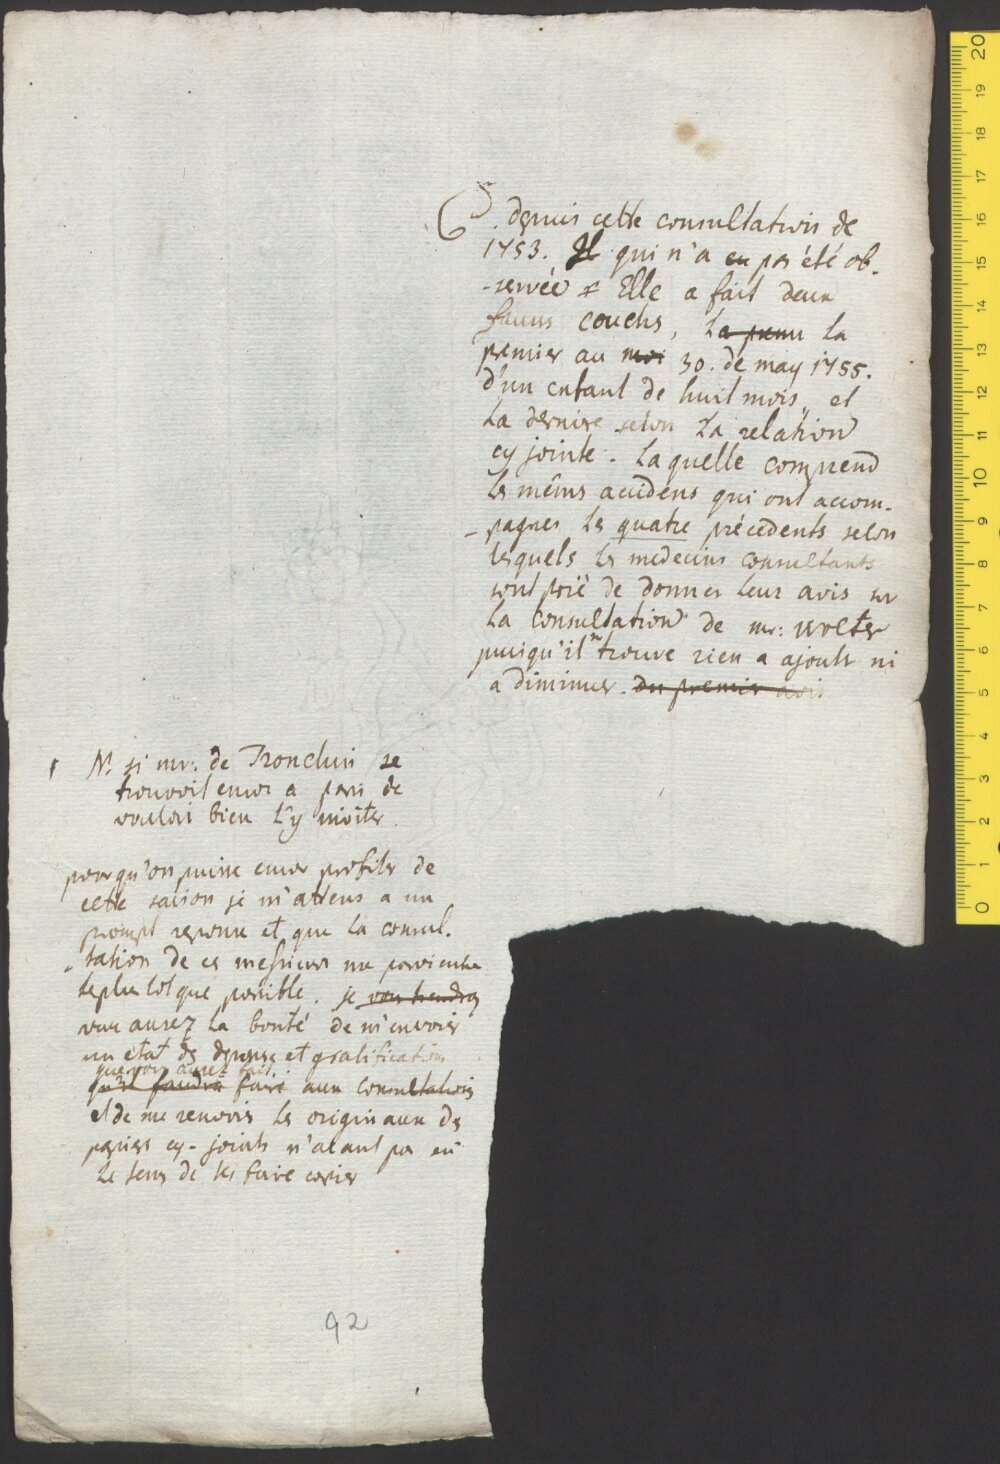 . depuis cette consultation de
1753. Il qui n'a eu pas été ob-
-servée # Elle a fait deux
fauss couchs, La premi La
premier au moi 30. de may 1755.
d'un enfant de huit mois, et
La dernire selon La relation
cy jointe. Laquelle comprend
Ls mêms accidens qui ont accom-
-pagner Ls quatre précedents selon
lesquels Ls medecins consultants
sont prié de donner leur avis sur
La Consultation de mr: wolter
puisqu'il n trouve rien a ajouter ni
a diminuer. du premier avis.
N. si mr: de Tronchin se
trouvoit encor a paris de
vouloir bien L'y inviter.
pour qu'on puisse encor profiter de
cette saison je m'attens a un
prompt reponse et que La consul-
-tation de ces messieurs me parvienne
le plus tot que possible. je vous tiendray
vous aurez La bonté de m'envoier
un état ds depense et gratifications
que vous aurez fait
qu'il faudra faire aux Consultations
et de me renvoier Ls originaux ds
papiers cy-joints n'aiant pas eu
Le tems de les faire copier
92
20
19
18
17
16
15
14
13
12
11
10
9
8
7
6
5
4
3
2
1
0